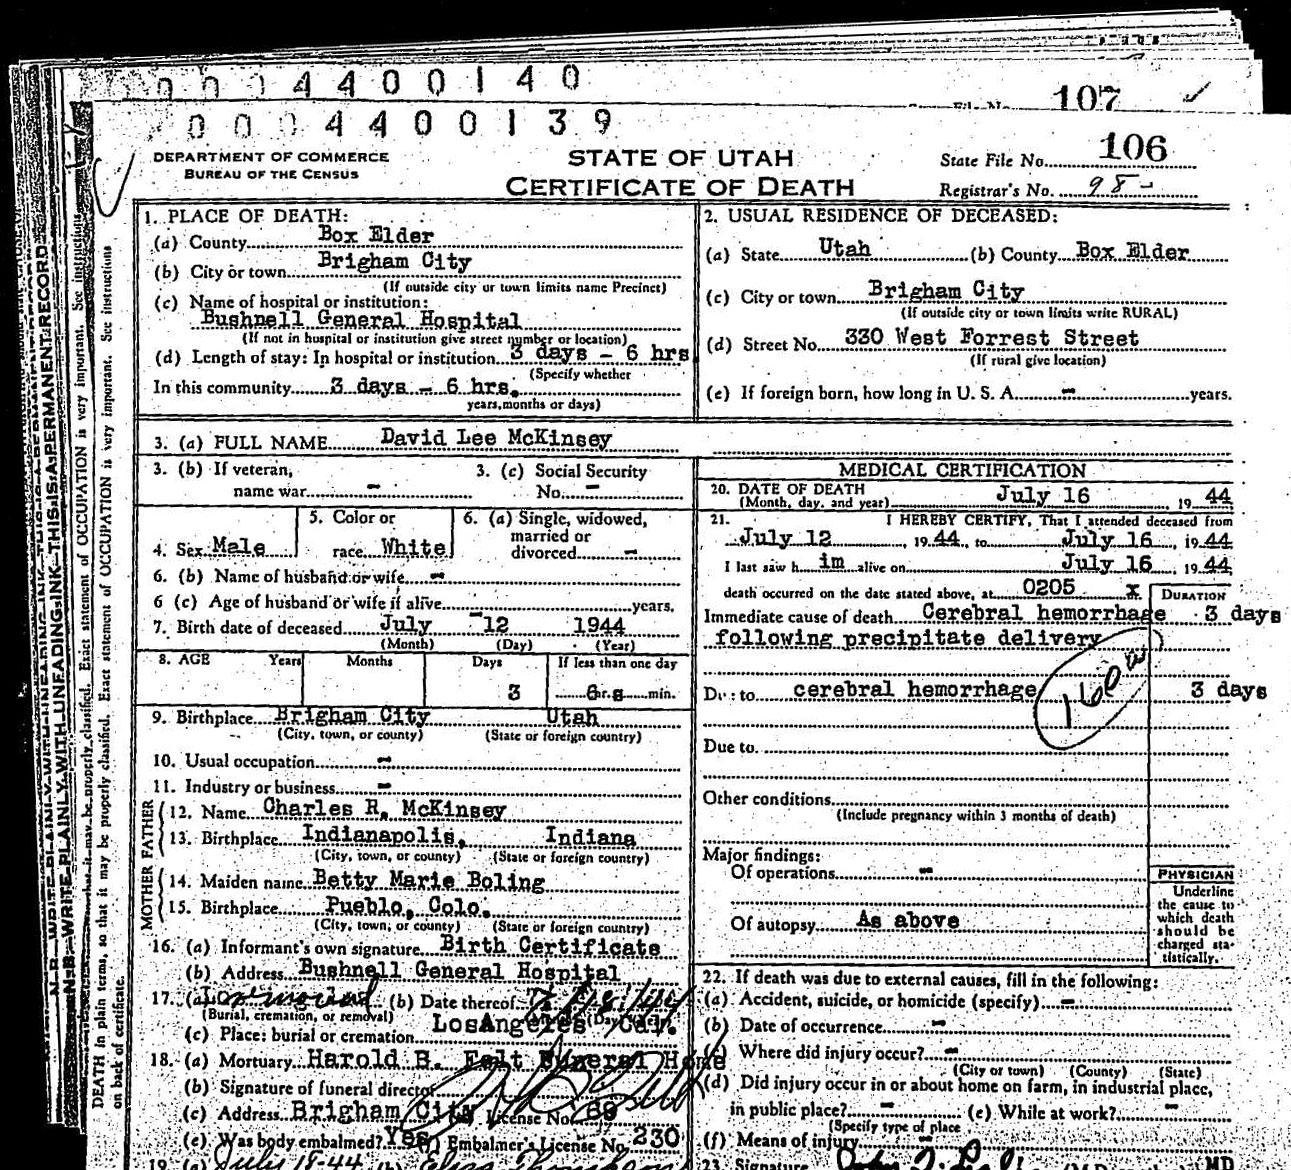 0 0 0 4 4 0 0 1 4 0
107
0 0 0 4 4 0 0 1 3 9
106
DEPARTMENT OF COMMERCE
BUREAU OF THE CENSUS
STATE OF UTAH
CERTIFICATE OF DEATH
State File No.
Registrar's No. 98-
1. PLACE OF DEATH:
(a) County Box Elder
(b) City or town Brigham City
(If outside city or town limits name Precinct)
(c) Name of hospital or institution:
Bushnell General Hospital
(If not in hospital or institution give street number or location)
(d) Length of stay: In hospital or institution 3 days - 6 hrs
(Specify whether
In this community 3 days - 6 hrs.
years, months or days)
2. USUAL RESIDENCE OF DECEASED:
(a) State Utah (b) County Box Elder
(c) City or town Brigham City
(If outside city or town limits write RURAL)
(d) Street No. 330 West Forrest Street
(If rural give location)
(e) If foreign born, how long in U. S. A. - years.
3. (a) FULL NAME David Lee McKinsey
3. (b) If veteran, name war -
3. (c) Social Security No. -
4. Sex Male
5. Color or race White
6. (a) Single, widowed, married or divorced -
6. (b) Name of husband or wife -
6 (c) Age of husband or wife if alive years.
7. Birth date of deceased July -12 1944
(Month) (Day) (Year)
8. AGE Years Months Days If less than one day
3 6 hrs min.
9. Birthplace Brigham City Utah
(City, town, or county) (State or foreign country)
10. Usual occupation -
11. Industry or business -
FATHER
12. Name Charles R. McKinsey
13. Birthplace Indianapolis, Indiana
(City, town, or county) (State or foreign country)
MOTHER
14. Maiden name Betty Marie Boling
15. Birthplace Pueblo, Colo.
(City, town, or county) (State or foreign country)
16. (a) Informant's own signature Birth Certificate
(b) Address Bushnell General Hospital
17. (a) (b) Date thereof
(Burial, cremation, or removal)
(c) Place: burial or cremation Los Angeles, Cal.
18. (a) Mortuary Harold B. Felt Funeral Home
(b) Signature of funeral director
(c) Address Brigham City License No. 69
(e) Was body embalmed? Yes Embalmer's License No. 230
19. (a) July 18-44
MEDICAL CERTIFICATION
20. DATE OF DEATH
(Month, day, and year) July 16, 1944
21. I HEREBY CERTIFY, That I attended deceased from
July 12, 1944, to July 16, 1944
I last saw him alive on July 16, 1944
death occurred on the date stated above, at 0205 x
DURATION
Immediate cause of death Cerebral hemorrhage 3 days
following precipitate delivery
Due to cerebral hemorrhage 3 days
160a
Due to
Other conditions
(Include pregnancy within 3 months of death)
Major findings:
Of operations -
Of autopsy As above
PHYSICIAN
Underline
the cause to
which death
should be
charged sta-
tistically.
22. If death was due to external causes, fill in the following:
(a) Accident, suicide, or homicide (specify) -
(b) Date of occurrence -
Where did injury occur? -
(City or town) (County) (State)
(d) Did injury occur in or about home on farm, in industrial place,
in public place? - (e) While at work? -
(Specify type of place
(f) Means of injury -
23. Signature MD
N. B. WRITE PLAINLY WITH UNFADING INK—THIS IS A PERMANENT RECORD
Exact statement of OCCUPATION is very important. See instructions
DEATH in plain terms, so that it may be properly classified. Exact statement of OCCUPATION is very important. See instructions
on back of certificate.